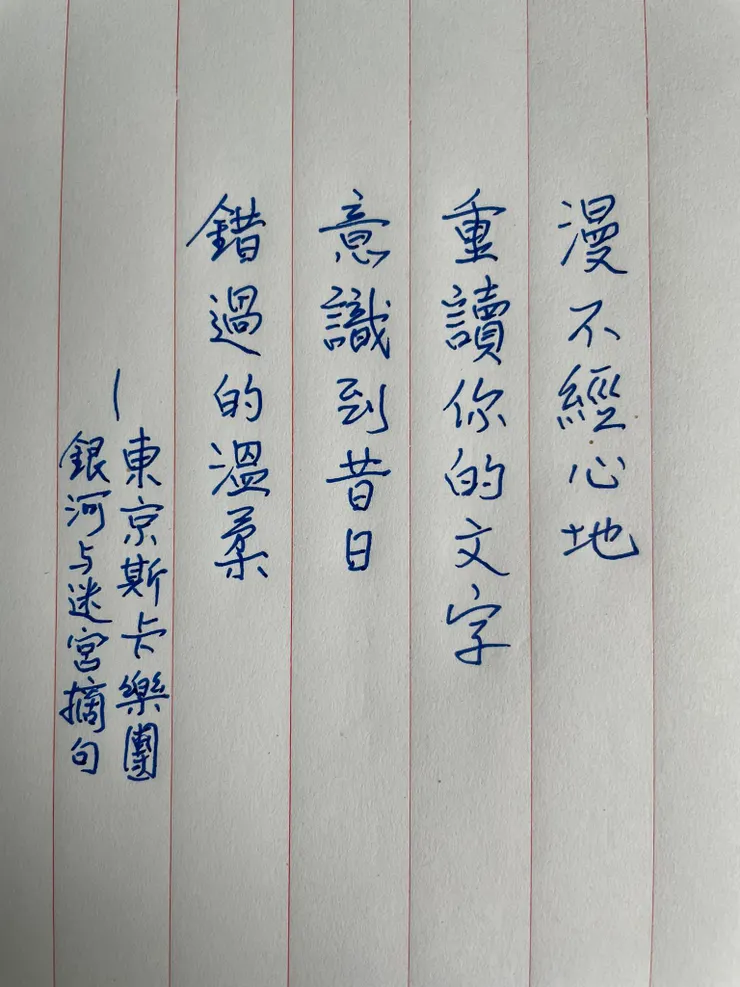 漫不經心地
重讀你的文字
意識到昔日
錯過的溫柔
—東京斯卡樂團
銀河与迷宮摘句